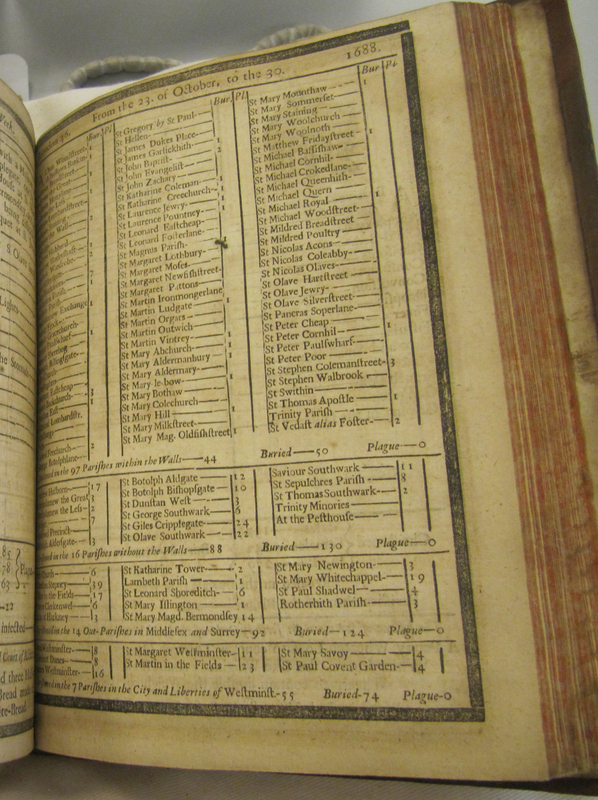 From the 23. of October, to the 30. 1688.
Bur. Pl.
St Gregory by St Paul
St Hellen
St James Dukes Place
St James Garlickhith
St John Baptist
St John Evangelist
St John Zachary
St Katharine Coleman
St Katharine Creechurch
St Laurence Jewry
St Laurence Pountney
St Leonard Eastcheap
St Leonard Fosterlane
St Magnus Parish
St Margaret Lothbury
St Margaret Moses
St Margaret Newfishstreet
St Margaret Pattons
St Martin Ironmongerlane
St Martin Ludgate
St Martin Orgars
St Martin Outwich
St Martin Vintrey
St Mary Abchurch
St Mary Aldermanbury
St Mary Aldermary
St Mary le-bow
St Mary Bothaw
St Mary Colechurch
St Mary Hill
St Mary Milkstreet
St Mary Mag. Oldfishstreet
Bur Pl.
St Mary Mounthaw
St Mary Sommerset
St Mary Staining
St Mary Woolchurch
St Mary Woolnoth
St Matthew Fridaystreet
St Michael Bassishaw
St Michael Cornhil
St Michael Crokedlane
St Michael Queenhith
St Michael Quern
St Michael Royal
St Michael Woodstreet
St Mildred Breadstreet
St Mildred Poultry
St Nicolas Acons
St Nicolas Coleabby
St Nicolas Olaves
St Olave Hartstreet
St Olave Jewry
St Olave Silverstreet
St Pancras Soperlane
St Peter Cheap
St Peter Cornhil
St Peter Paulswharf
St Peter Poor
St Stephen Colemanstreet 3
St Stephen Walbrook
St Swithin
St Thomas Apostle 1
Trinity Parish
St Vedast alias Foster 2
in the 97 Parishes within the Walls—44 Buried—50 Plague—0
17
St Botolph Aldgate 12
St Botolph Bishopsgate 10
St Dunstan West 3
St George Southwark 6
St Giles Cripplegate 24
St Olave Southwark 22
Saviour Southwark 11
St Sepulchres Parish 8
St Thomas Southwark 2
Trinity Minories
At the Pesthouse
in the 16 Parishes without the Walls—88 Buried—130 Plague—0
6
39
17
6
3
St Katharine Tower 2
Lambeth Parish 1
St Leonard Shoreditch 6
St Mary Islington 1
St Mary Magd. Bermondsey 14
St Mary Newington 3
St Mary Whitechappel 19
St Paul Shadwel 4
Rotherhith Parish 3
in the 14 Out-Parishes in Middlesex and Surrey—92 Buried—124 Plague—0
8
8
16
St Margaret Westminster 11
St Martin in the Fields 23
St Mary Savoy 4
St Paul Covent Garden 4
in the 7 Parishes in the City and Liberties of Westminst.-55 Buried-74 Plague-0